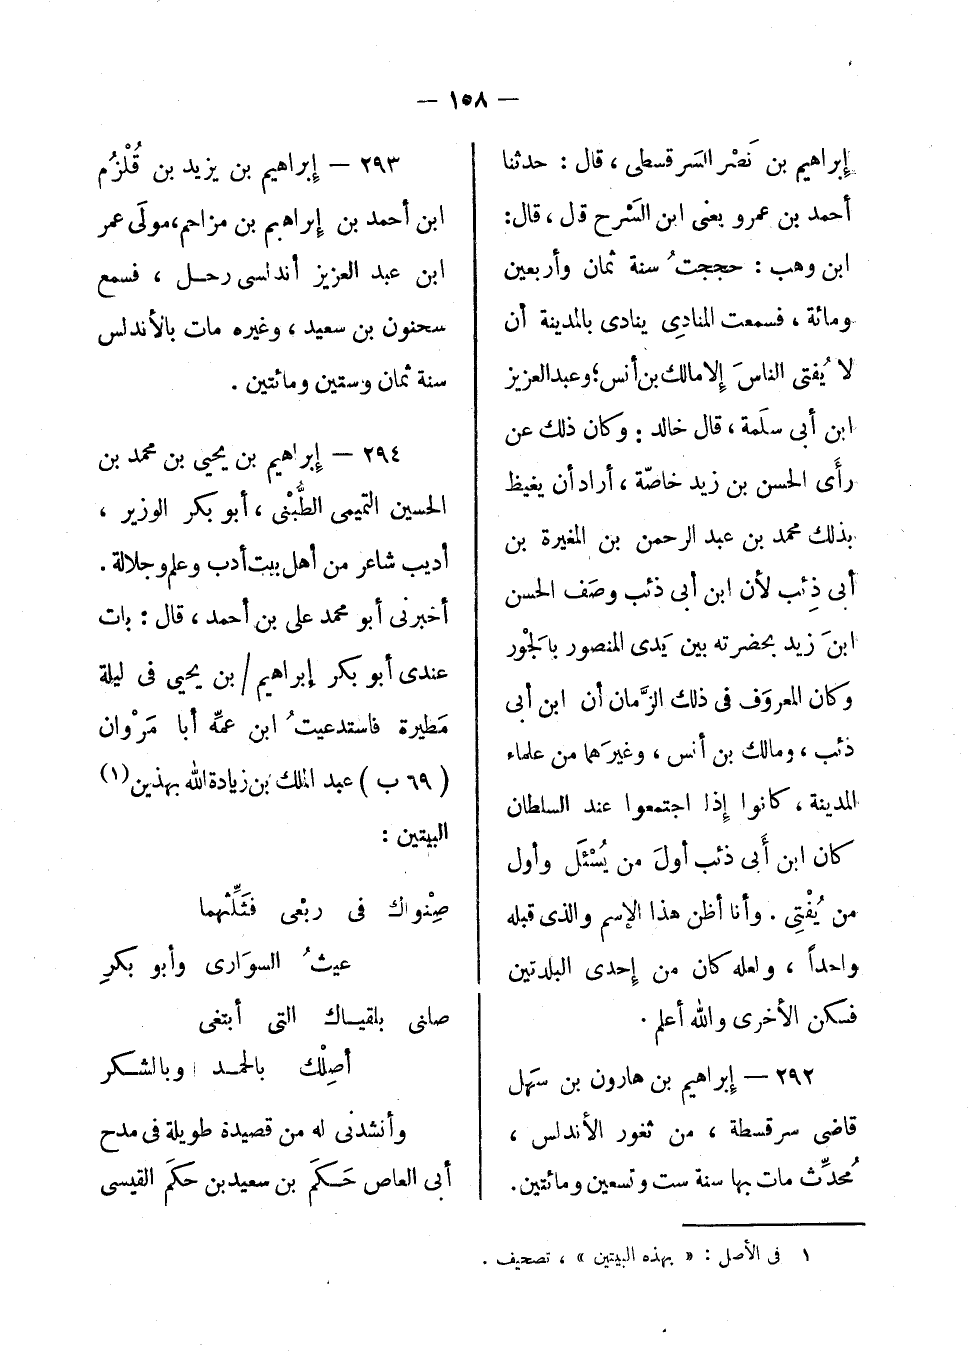 — ١٥٨ —
إبراهيم بن نَصْر السَرقسطى ، قال : حدثنا
أحمد بن عمرو يعنى ابن السَرْح قال ، قال :
ابن وهب : حججتُ سنة ثمان وأربعين
ومائة ، فسمعت المنادِى ينادى بالمدينة أن
لا يُفتى الناسَ إلا مالك بن أنس ؛ وعبد العزيز
ابن أبى سلَمة ، قال خالد : وكان ذلك عن
رأَى الحسن بن زيد خاصّة ، أراد أن يغيظ
بذلك محمد بن عبد الرحمن بن المغيرة بن
أبى ذِئب لأن ابن أبى ذئب وصَف الحسن
ابنَ زيد بحضرته بين يَدى المنصور بالَجْور
وكان المعروَف فى ذلك الزَّمان أن ابن أبى
ذئب ، ومالك بن أنس ، وغيرَهما من علماء
المدينة ، كانوا إذا اجتمعوا عند السلطان
كان ابن أَبى ذئب أولَ من يُسْئَل وأول
من يُفْتِى . وأنا أظن هذا الإسم والذى قبله
واحداً ، ولعله كان من إحدى البلدتين
فسكن الأخرى والله أعلم .
٢٩٢ — إبراهيم بن هارون بن سَهل
قاضى سرقسطة ، من ثغور الأندلس ،
مُحدِّث مات بها سنة ست وتسعين ومائتين .
٢٩٣ — إبراهيم بن يزيد بن قُلْزُم
ابن أحمد بن إبراهيم بن مزاحم ، مولَى عمر
ابن عبد العزيز أندلسى رحـل ، فسمع
سحنون بن سعيد ، وغيره مات بالأندلس
سنة ثمان وستين ومائتين .
٢٩٤ — إبراهيم بن يحيى بن محمد بن
الحسين التميمى الطُّبْنى ، أبو بكر الوزير ،
أديب شاعر من أهل بيت أدب وعلم وجلالة .
أخبرنى أبو محمد على بن أحمد ، قال : بات
عندى أبو بكر إبراهيم / بن يحيى فى ليلة
مَطيرة فاستدعيتُ ابن عمِّه أبا مَرْوان
( ٦٩ ب ) عبد الملك بن زيادة الله بهذين (١)
البيتين :
صِنْواك فى ربْعى فثَلِّثهما
غيثُ السوَارى وأبو بكرِ
صلنى بلقيـاك التى أبتغى
أصِلْك بالحمـد وبالشـكر
وأنشدنى له من قصيدة طويلة فى مدح
أبى العاص حَـكَم بن سعيد بن حكَم القيسى
١ فى الأصل : « بهذه البيتين » ، تصحيف .